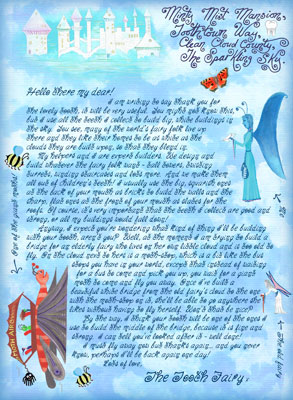 Minty Mist Mansion,
Toothtown Way,
Clean Cloud County,
The Sparkling Sky.
Hello there my dear!
I am writing to say thank you for
the lovely tooth, it will be very useful. You might not know this,
but I use all the teeth I collect to build big, white buildings in
the sky. You see, many of the world's fairy folk live up
there and they like their homes to be as white as the
clouds they are built upon, so that they blend in.
My helpers and I are expert builders. We design and
build whatever the fairy folk want - tall towers, twisting
turrets, winding staircases and lots more. And we make them
all out of children's teeth! I usually use the big, squarish ones
at the back of your mouth as bricks to build the walls and the
sharp, flat ones at the front of your mouth as slates for the
roofs. Of course, it's very important that the teeth I collect are good and
strong, or all my buildings would fall down!
Anyway, I expect you're wondering what kind of thing I'll be building
with your tooth, aren't you? Well, at the moment I am trying to build a
bridge for an elderly fairy who lives on her own little cloud and is too old to
fly. On the cloud next to hers is a moth-stop, which is a bit like the bus
stops you have in your world, except that instead of waiting
for a bus to come and pick you up, you wait for a giant
moth to come and fly you away. Once I've built a
beautiful white bridge from the old fairy's cloud to the one
with the moth-stop on it, she'll be able to go anywhere she
likes without having to fly herself. Won't that be nice?
By the way, I think your tooth will be one of the ones I
use to build the middle of the bridge, because it is firm and
strong. I can tell you've looked after it - well done!
I must fly away now but thanks again... and you never
know, perhaps I'll be back again one day!
Lots of love,
The Tooth Fairy.
Moth Airlines
Me